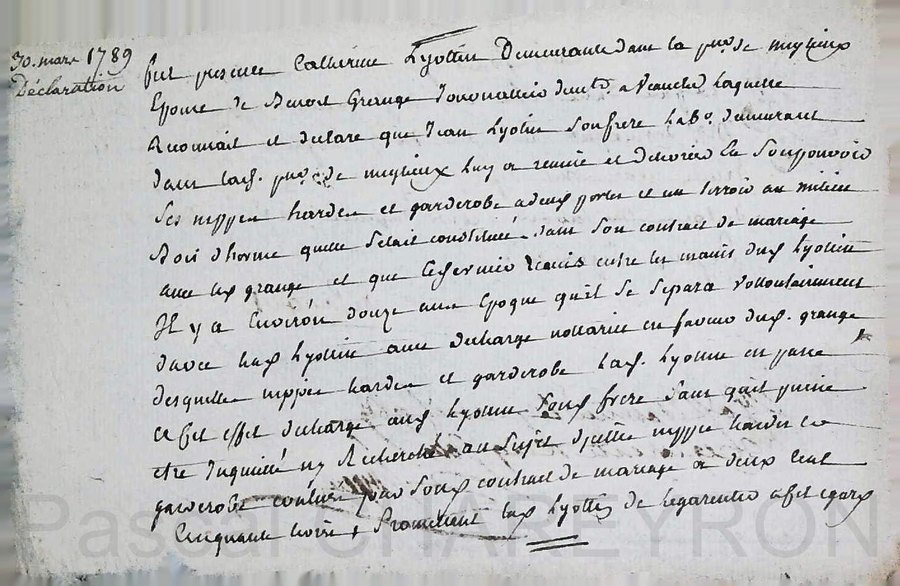 30. mars 1789
Déclaration
fut presente Catherine Lyottin Demeurante dans la pnt. de
Epouse de Benoit Grange Journallier a laquelle
Reconnait et declare que Jean Lyotin Son frere Lab.r demeurant
dans lad. de luy a remis et delivré En Son pouvoir
Ses nippes hardes et garderobe a deux portes et un tirroir au milieu
Bois d'horme quelle S'etait constituée dans Son contrat de mariage
avec led. grange et que Ce dernier remis entre les mains dud. Lyottin
Il y a Environ douze ans Epoque qu'il Se Separa vollontairement
d'avec lad. Lyottin avec decharge nottariée en faveur dud. grange
desquelles nippes hardes et garderobe lad. Lyottin en passe
a cet effet decharge aud. Lyottin Sond. frere Sans qu'il puisse
etre Inquietté ny Recherché au Sujet desdites nippes hardes et
garderobe dans Sond. contrat de mariage a deux Cent
Cinquante livres Promettant lad. Lyottin de le garentir a cet egard
Pascal CHAREYRON